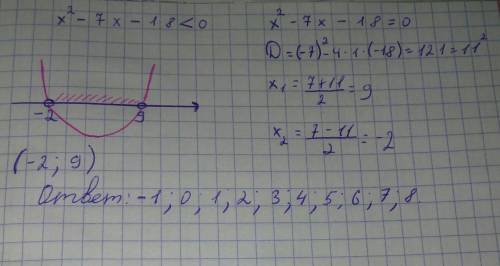 x² - 7x - 18 < 0
x² - 7x - 18 = 0
D = (-7)² - 4 · 1 · (-18) = 121 = 11²
x₁ = (7+11)/2 = 9
x₂ = (7-11)/2 = -2
-2 9
(-2; 9)
Ответ: -1; 0; 1; 2; 3; 4; 5; 6; 7; 8.